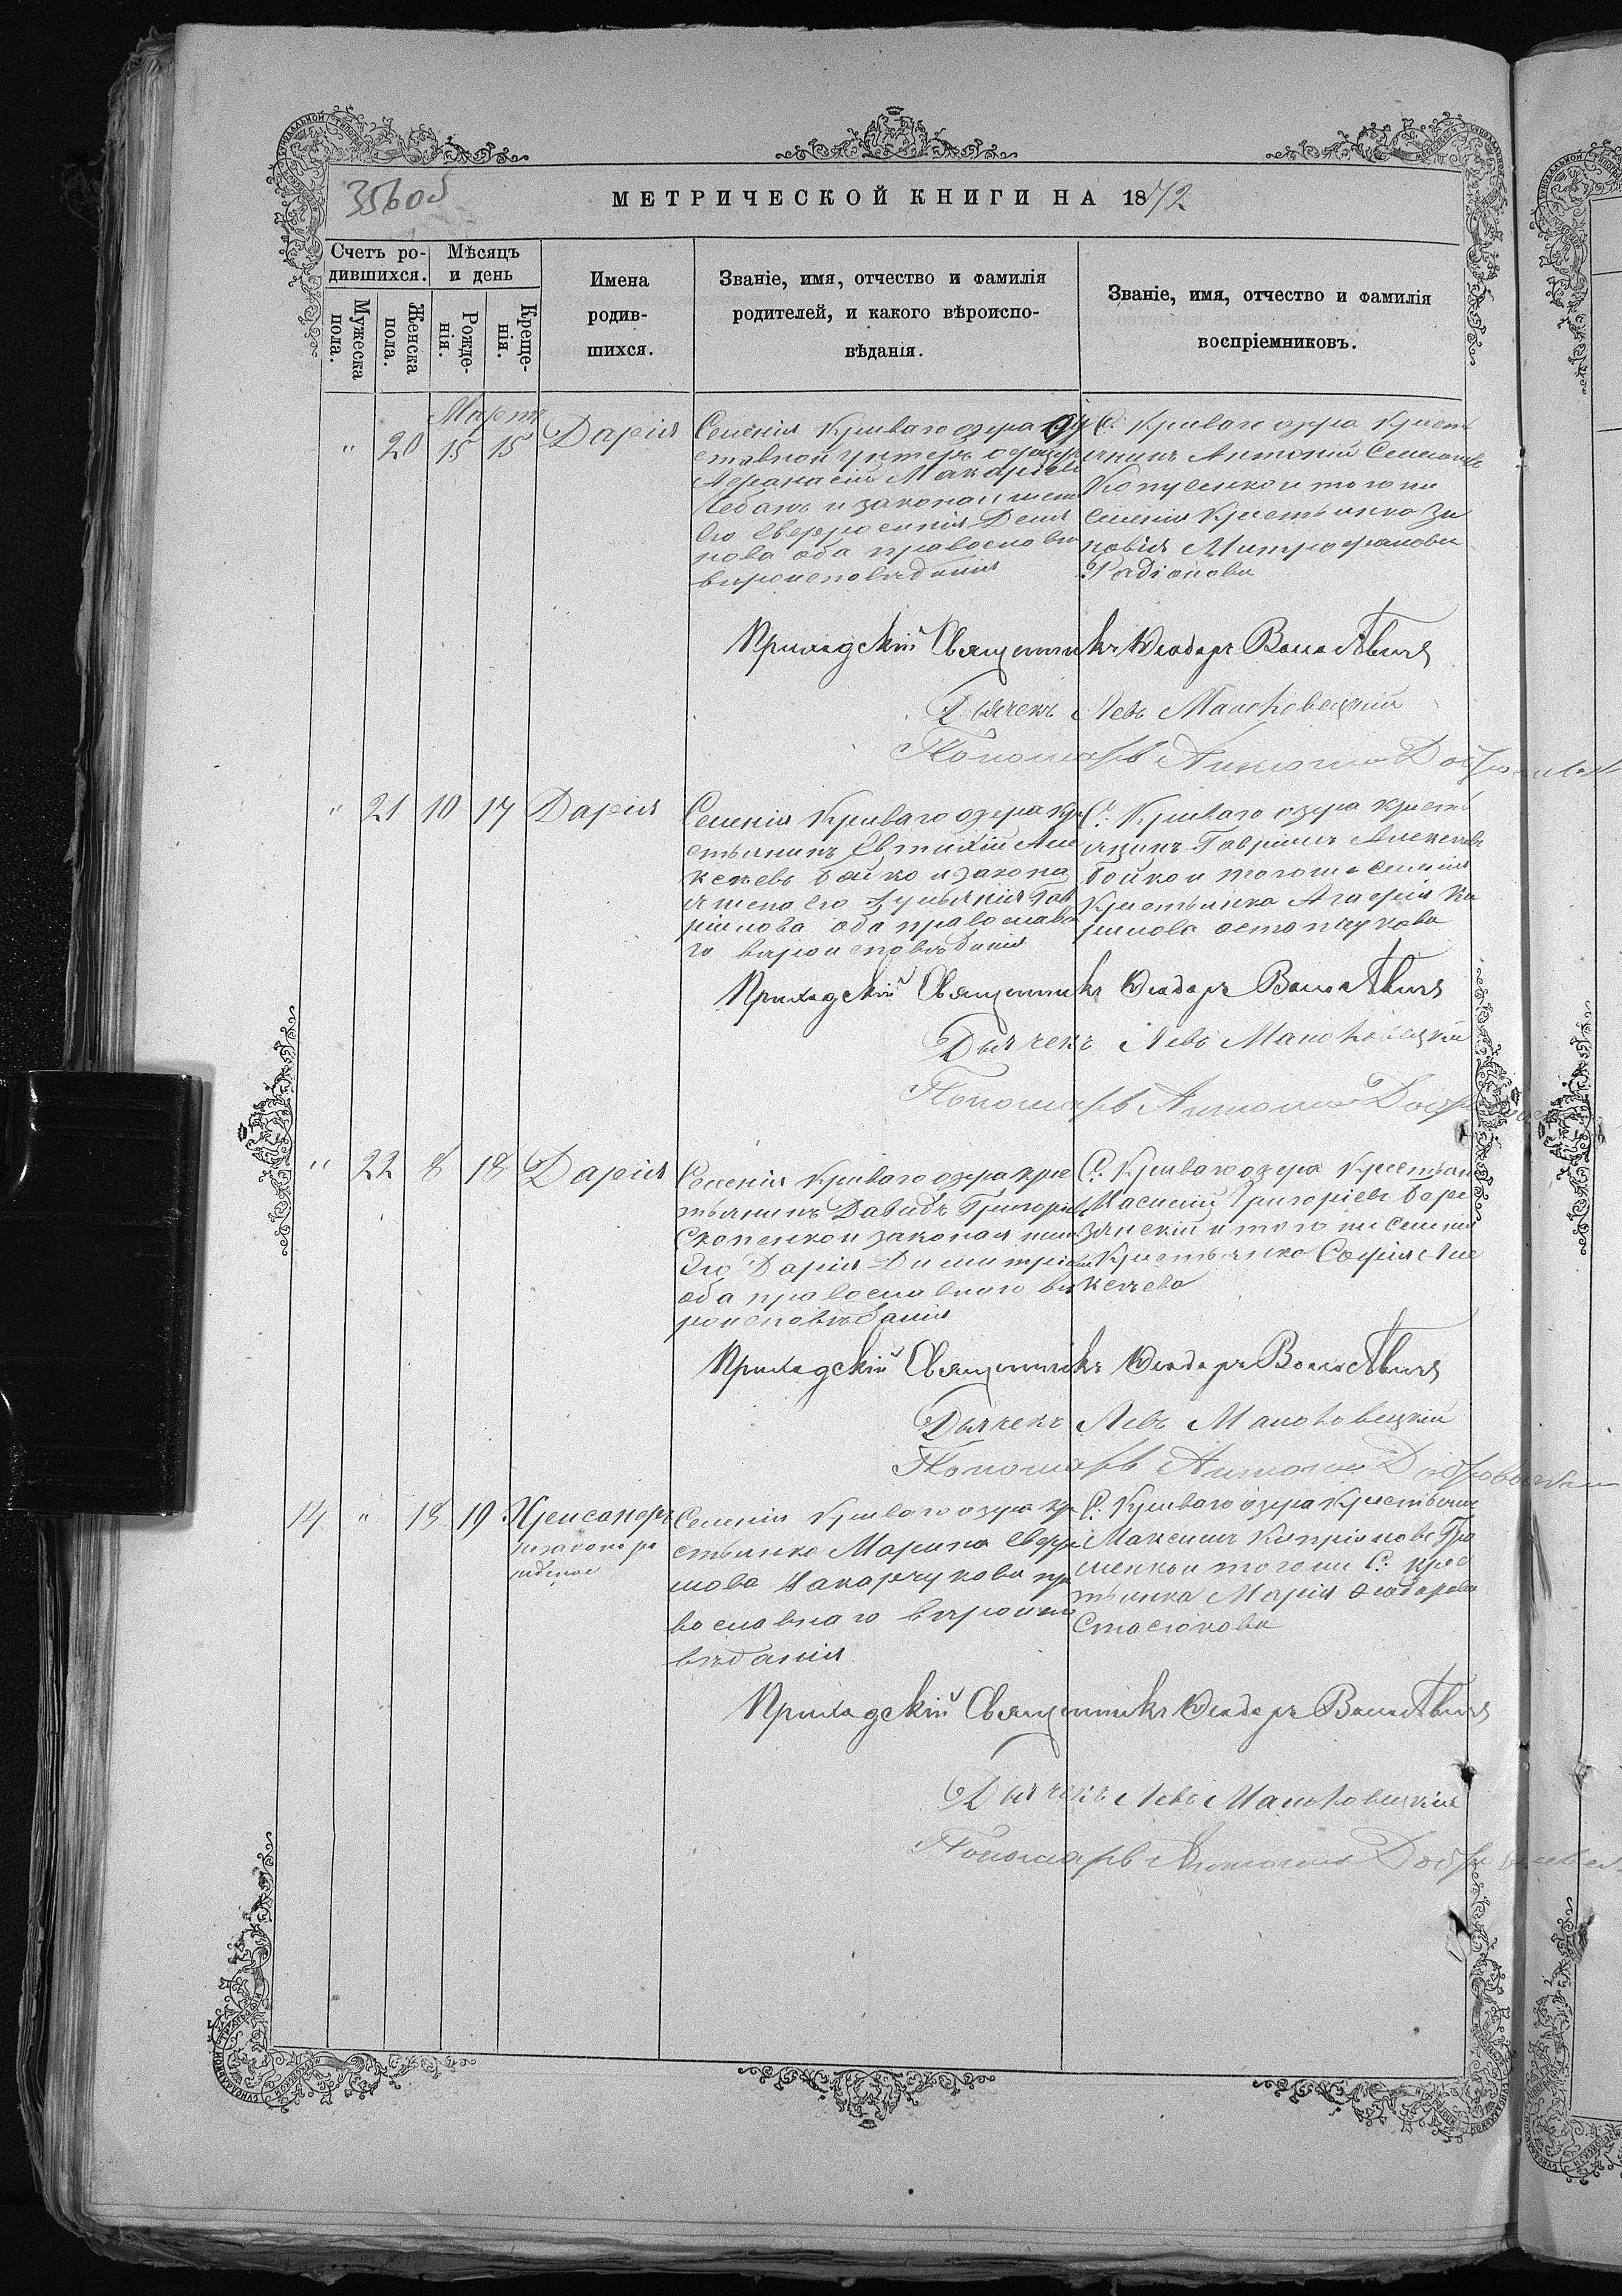 356об
МЕТРИЧЕСКОЙ КНИГИ НА 1872
Счетъ ро-
дившихся.
Мужеска
пола.
Женска
пола.
Мѣсяцъ
и день
Рожде-
нія.
Креще-
нія.
Имена
родив-
шихся.
Званіе, имя, отчество и фамилія
родителей, и какого вѣроиспо-
вѣданія.
Званіе, имя, отчество и фамилія
воспріемниковъ.
Мартъ
" 20 15 15 Дарія
Селенія Криваго озера
Аѳанасій Макаріевъ
Чебанъ и законая жена
его Евфросинія Деми
дова оба православн
вѣроисповѣданія
С. Криваго озера Кресть
янинъ Антоній Семеновъ
и того же
селенія Крестьянка Зи
новія Митрофанова
Радіонова
Приходскій Священникъ Ѳеодоръ
Дьячекъ Левъ Маньковецкій
Пономарь Антоній
" 21 10 17 Дарія
Селенія Криваго озера Кре
стьянинъ Евтихій Але
ксѣевъ Бойко и закона
я жена его Іуліянія Гав
ріилова оба православна
го вѣроисповѣданія
С. Криваго озера Кресть
янинъ Гавріилъ Алексѣевъ
Бойко и того же селенія
Крестьянка Агафія Ки
рилова Остапчукова
Приходскій Священникъ Ѳеодоръ
Дьячекъ Левъ Маньковецкій
Пономарь Антоній
" 22 8 18 Дарія
Селенія Криваго озера Кре
стьянинъ Давидъ Григоріевъ
и законая жена
Его Дарія Димитріева
оба православного вѣ
роисповѣданія
С. Криваго озера Крестьян
Касіаній Григоріевъ Бере
занскій и того же селенія
Крестьянка Софія Але
ксѣева
Приходскій Священникъ Ѳеодоръ
Дьячекъ Левъ Маньковецкій
Пономарь Антоній
14 " 18 19 Хрисанфъ
незаконо ро
жденое
Селенія Криваго озера Кр
стьянка Марина Ефре
мова Макарчукова пра
вославнаго вѣроиспо
вѣданія
С. Криваго озера Крестьянин
Максимъ Кипріановъ
и того же С. Крес
тьянка Марія Ѳеодорова
Стасюкова
Приходскій Священникъ Ѳеодоръ
Дьячекъ Левъ Маньковецкій
Пономарь Антоній